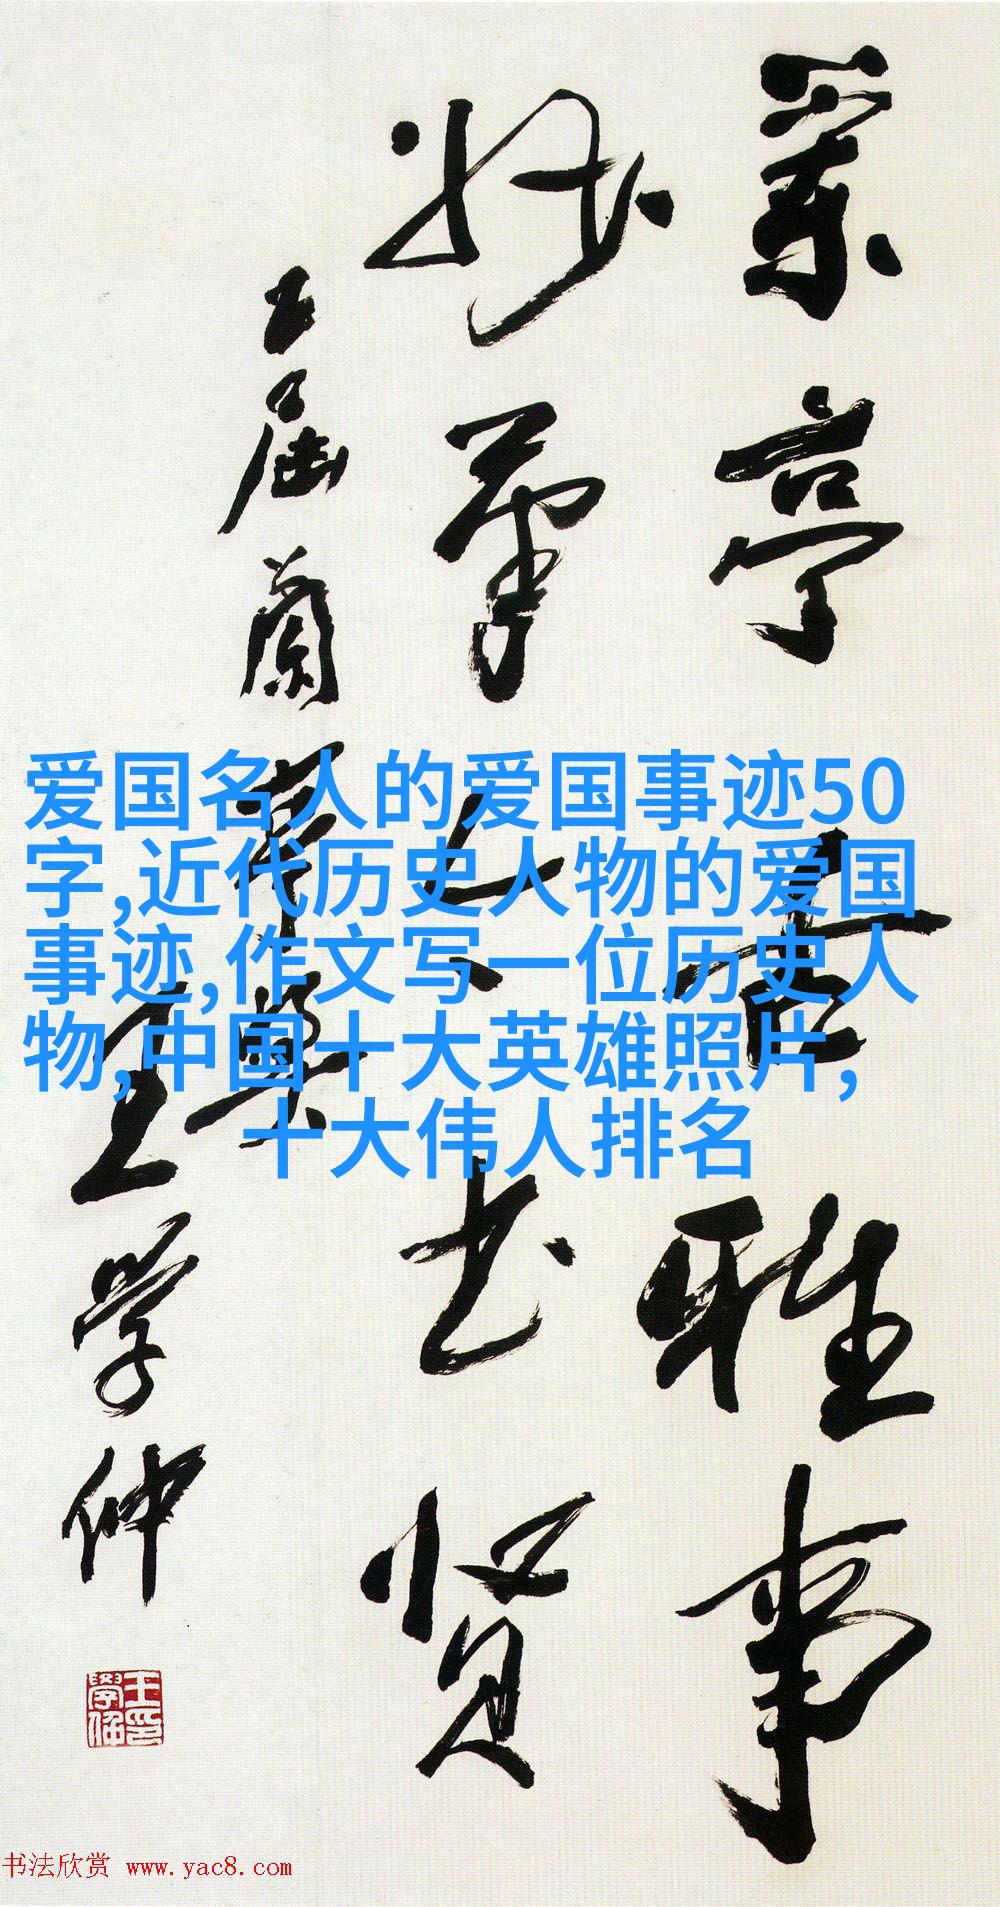 兰亭高雅事
妙笔入书贤
五届兰亭奖
王学仲
王学仲印
爱国名人的爱国事迹50
字,近代历史人物的爱国
事迹,作文写一位历史人
物,中国十大英雄照片,
十大伟人排名
书法欣赏 www.yac8.com